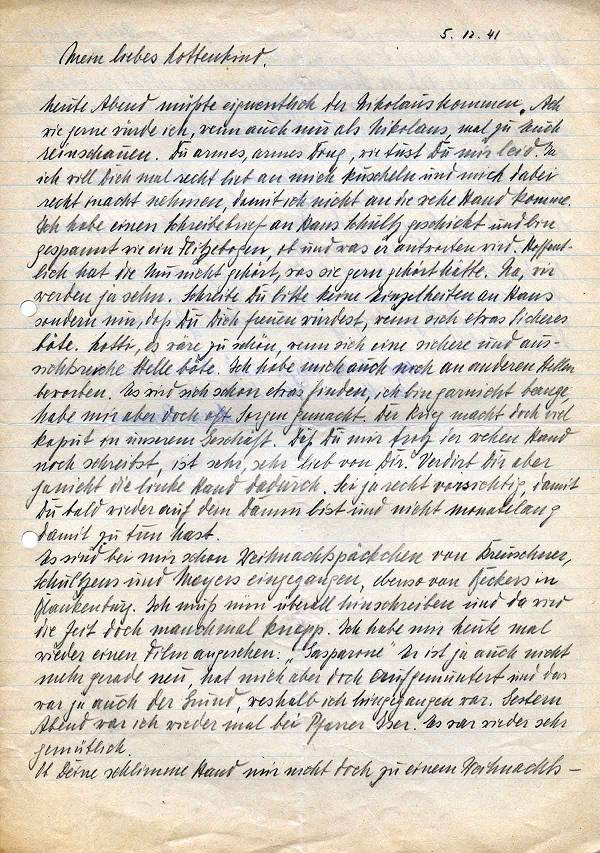 5. 12. 41
Mein liebes Lottenkind.
heute Abend müßte eigentlich der Nikolaus kommen. Ach
wie gerne würde ich, wenn auch nur als Nikolaus, mal zu Euch
reinschauen. Du armes, armes Ding, wie tust Du mir leid. Na
ich will Dich mal recht lieb an mich kuscheln und mich dabei
recht inacht nehmen, damit ich nicht an die wehe Hand komme.
Ich habe einen Schreibebrief an Hans Schultz geschickt und bin
gespannt wie ein Flitzebogen, ob und was er antworten wird. Hoffent-
lich hat die nicht gehört, was sie gern gehört hätte. Na, wir
werden ja sehn. Schreibe Du bitte keine Einzelheiten an Hans
sondern nur, daß Du Dich freuen würdest, wenn sich etwas Sicheres
böte. Lotti, es wäre zu schön, wenn sich eine sichere und aus-
sichtsreiche Stelle böte. Ich habe mich auch noch an anderen Stellen
beworben. Es wird sich schon etwas finden, ich bin garnicht bange,
habe mir aber doch oft Sorgen gemacht. Der Krieg macht doch viel
kaput in unserem Geschäft. Daß Du mir trotz der wehen Hand
noch schreibst, ist sehr, sehr lieb von Dir. Verdirb Dir aber
ja nicht die linke Hand dadurch. Sei ja recht vorsichtig, damit
Du bald wieder auf dem Damm bist und nicht monatelang
damit zu tun hast.
Es sind bei mir schon Weihnachtspäckchen von
Schultzens und Meyers eingegangen, ebenso von Beckers in
Blankenburg. Ich muß nun überall hinschreiben und da wird
die Zeit doch manchmal knapp. Ich habe mir heute mal
wieder einen Film angesehen: „Gasparone" Er ist ja auch nicht
mehr gerade neu, hat mich aber doch aufgemuntert und das
war ja auch der Grund, weshalb ich hingegangen war. Gestern
Abend war ich wieder mal bei Pfarrer Es war wieder sehr
gemütlich.
Ob Deine schlimme Hand nur nicht doch zu einem Weihnachts-